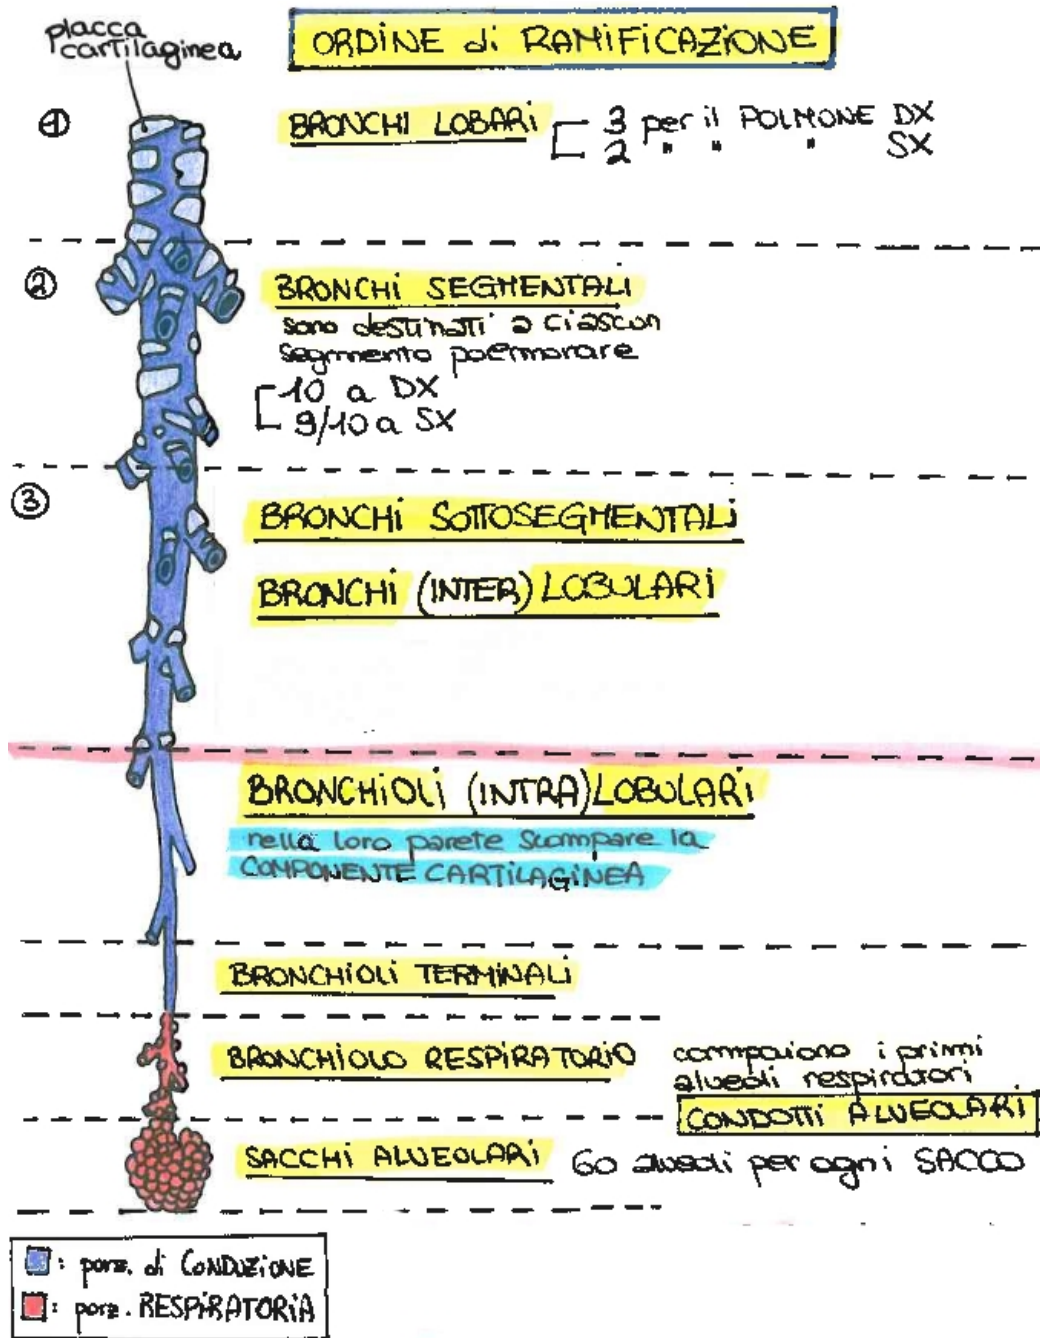 placca
cartilaginea
ORDINE di RAMIFICAZIONE
① BRONCHI LOBARI 3 per il POLMONE DX
2 " " " SX
② BRONCHI SEGMENTALI
sono destinati a ciascun
segmento polmonare
10 a DX
9/10 a SX
③ BRONCHI SOTTOSEGMENTALI
BRONCHI (INTER) LOBULARI
BRONCHIOLI (INTRA) LOBULARI
nella loro parete scompare la
COMPONENTE CARTILAGINEA
BRONCHIOLI TERMINALI
BRONCHIOLO RESPIRATORIO compaiono i primi
alveoli respiratori
CONDOTTI ALVEOLARI
SACCHI ALVEOLARI 60 alveoli per ogni SACCO
: porz. di CONDUZIONE
: porz. RESPIRATORIA